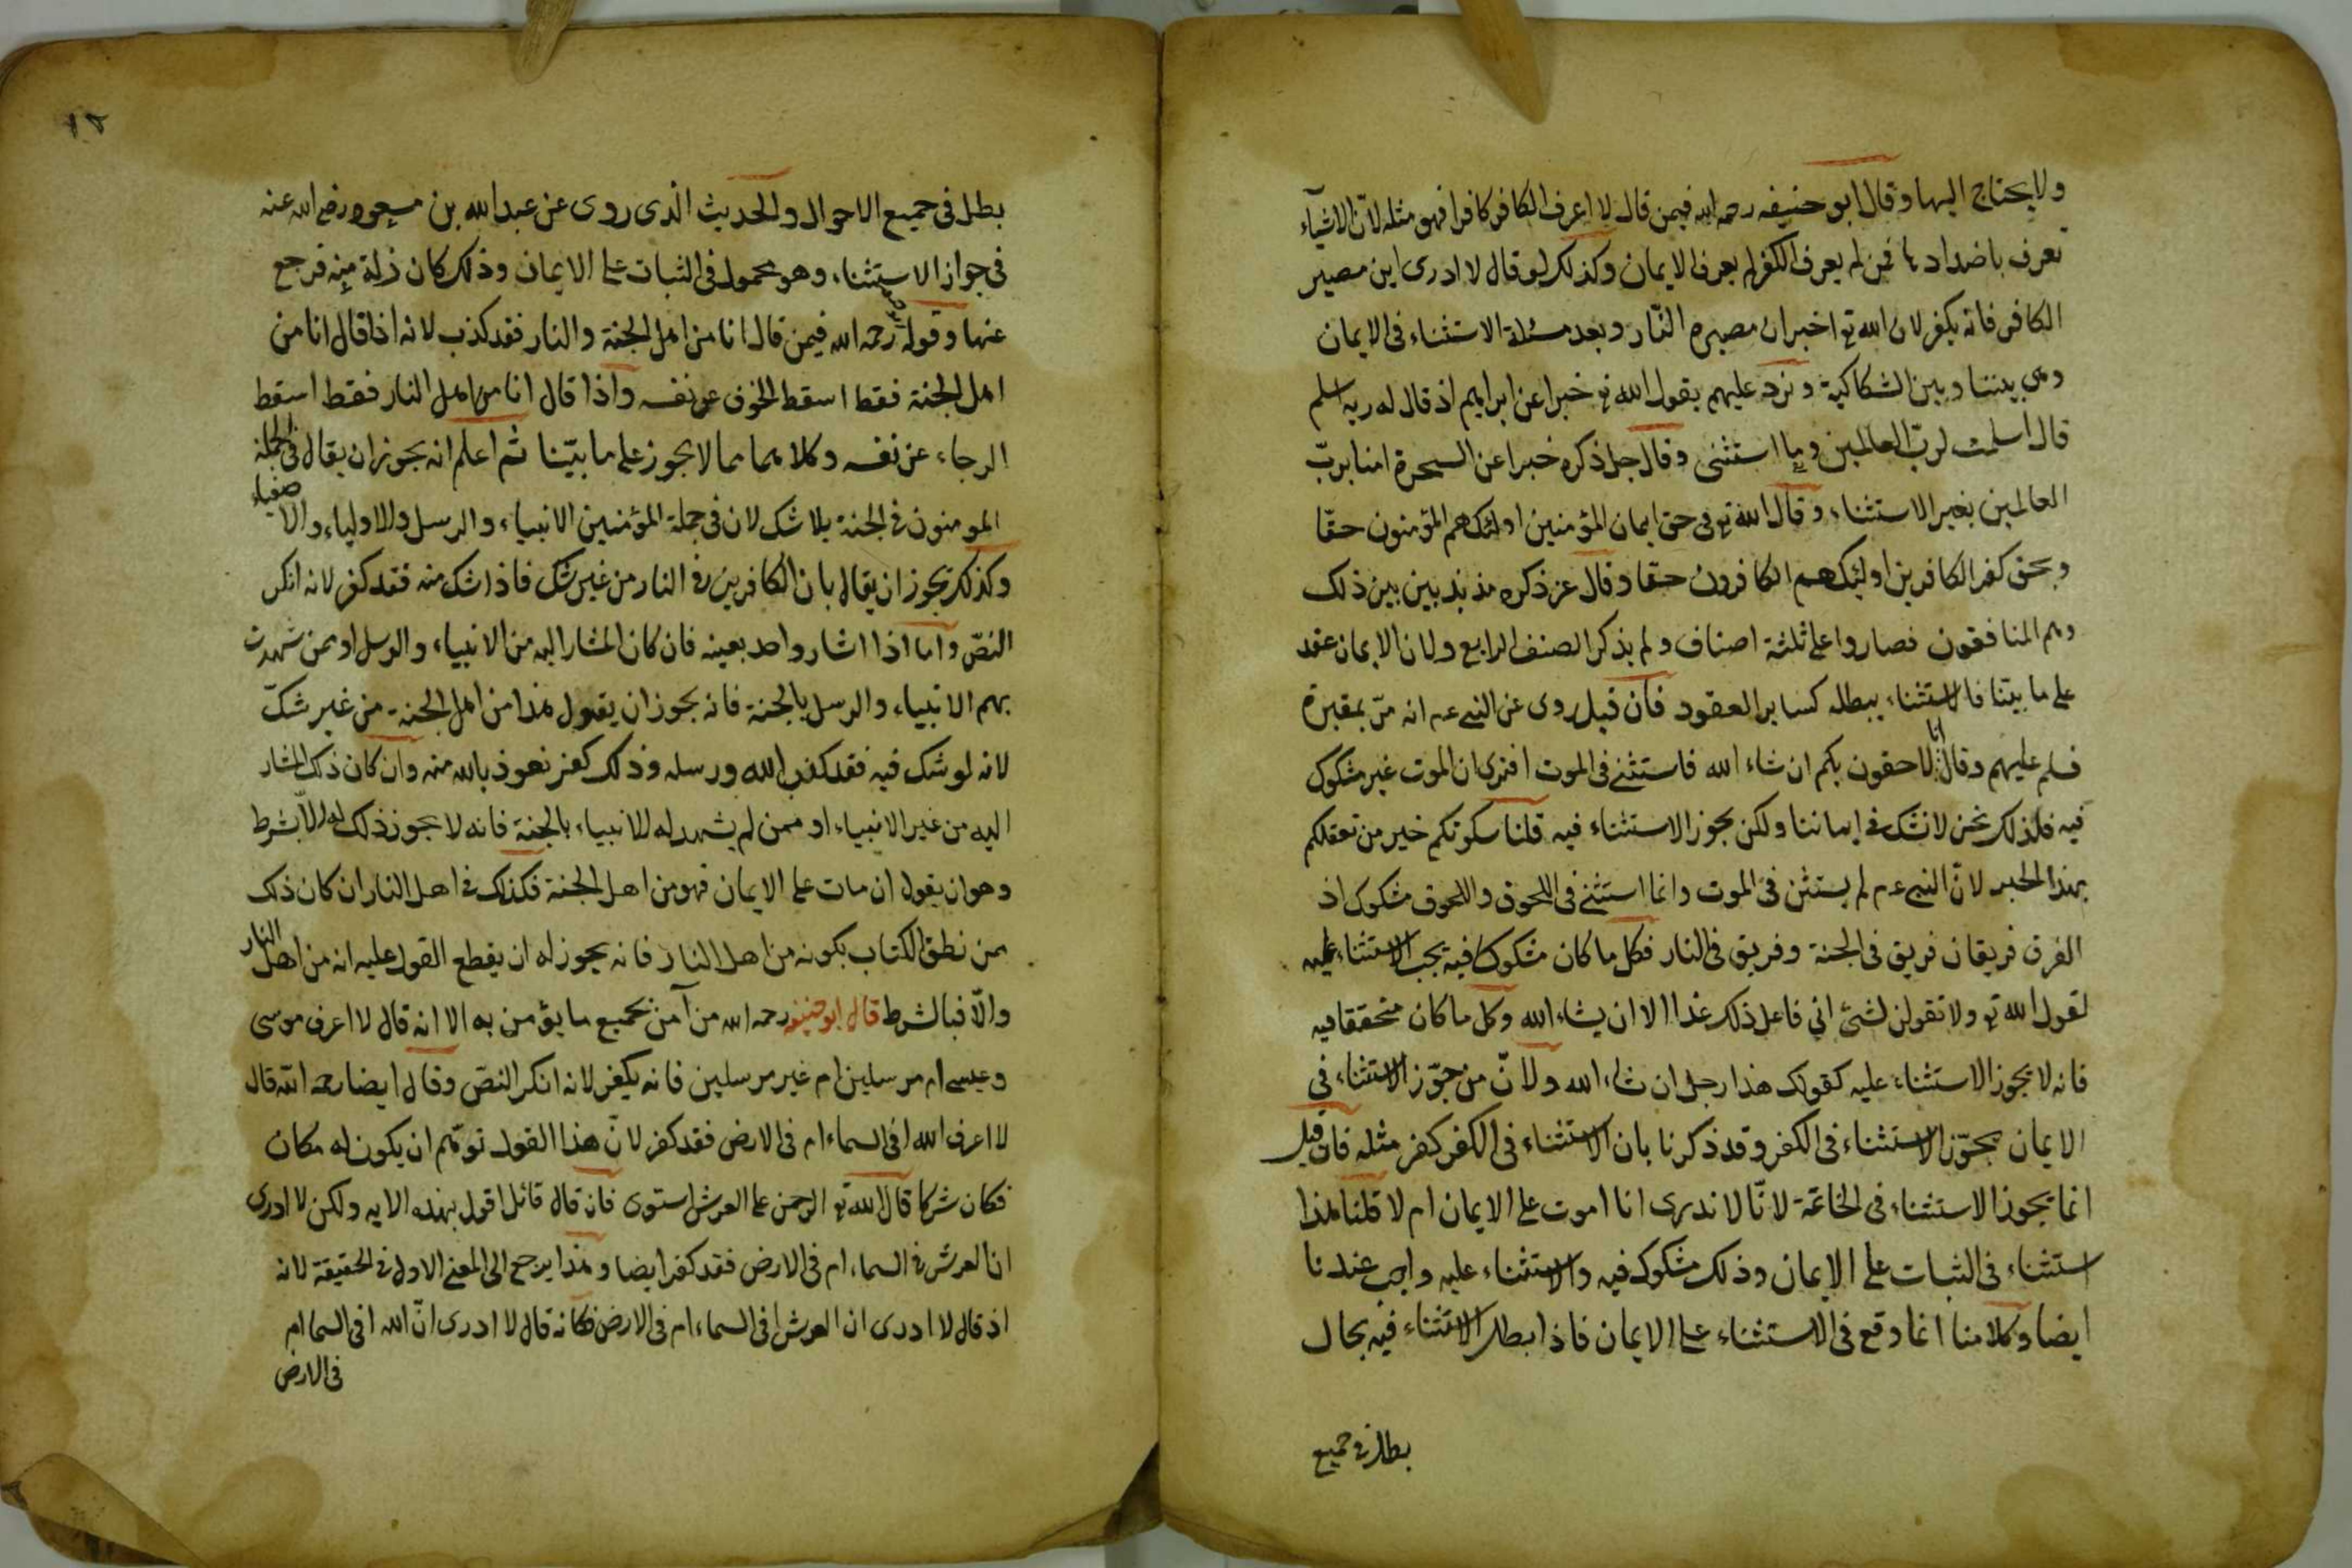 ولا يحتاج اليها وقال ابو حنيفه رحمه الله فيمن قال لا اعرف الكافر كافرا فهو مثله لانّ الاشيآء
تعرف باضدادها فمن لم يعرف الكفر لم يعرف الايمان وكذلك لو قال لا ادرى اين مصير
الكافر فانه يكفر لان الله تع اخبر ان مصيره النّار وبعد مسئلة الاستثناء فى الايمان
وهى بيننا وبين الشكاكية ونرد عليهم بقول الله تع خبرا عن ابراهيم اذ قال له ربه اسلم
قال اسلمت لربّ العالمين وما استثنى وقال جل ذكره خبرا عن السحرة امنا بربّ
العالمين بغير الاستثناء وقال الله تع فى حق ايمان المؤمنين اولئك هم المؤمنون حقّا
وبحق كفر الكافرين اولئك هم الكافرون حقا وقال عز ذكره مذبذبين بين ذلك
وهم المنافقون فصاروا على ثلثة اصناف ولم يذكر الصنف الرابع ولان الايمان عقد
على ما بيّنا فالاستثناء يبطله كساير العقود فان قيل روى عن النبى عم انه مرّ بمقبرة
فسلم عليهم وقال انا لاحقون بكم ان شاء الله فاستثنى فى الموت افترى ان الموت غير مشكوك
فيه فلذلك نحن لا نشك فى ايماننا ولكن يجوز الاستثناء فيه قلنا سكوتكم خير من تعقلكم
بهذا الخبر لانّ النبى عم لم يستثن فى الموت وانما استثنى فى اللحوق واللحوق مشكوك اذ
الفرق فريقان فريق فى الجنة وفريق فى النار فكل ما كان مشكوكا فيه يجب الاستثناء عليه
لقول الله تع ولا تقولن لشئ انى فاعل ذلك غدا الا ان يشاء الله وكل ما كان متحققا فيه
فانه لا يجوز الاستثناء عليه كقولك هذا رجل ان شاء الله ولانّ من جوّز الاستثناء فى
الايمان يجوّز الاستثناء فى الكفر وقد ذكرنا بان الاستثناء فى الكفر كفر مثله فان قيل
انما يجوز الاستثناء فى الخاتمة لانّا لا ندرى انا اموت على الايمان ام لا قلنا هذا
استثناء فى الثبات على الايمان وذلك مشكوك فيه والاستثناء عليه واجب عندنا
ايضا وكلامنا انما وقع فى الاستثناء على الايمان فاذا بطل الاستثناء فيه بحال
بطل فى جميع
١٢
بطل فى جميع الاحوال والحديث الّذى روى عن عبد الله بن مسعود رضى الله عنه
فى جواز الاستثناء وهو محمول فى الثبات على الايمان وذلك كان زلة منه فرجع
عنها وقوله رحمه الله فيمن قال انا من اهل الجنة والنار فقد كذب لانه اذا قال انا من
اهل الجنة فقط اسقط الخوف عن نفسه واذا قال انا من اهل النار فقط اسقط
الرجاء عن نفسه وكلاهما مما لا يجوز على ما بيّنا ثم اعلم انه يجوز ان يقال فى الجملة
المومنون فى الجنة بلا شك لان فى جملة المؤمنين الانبياء والرسل والاولياء والاصفياء
وكذلك يجوز ان يقال بان الكافرين فى النار من غير شك فاذا شك منه فقد كفر لانه انكر
النصّ واما اذا اشار واحد بعينه فان كان المشار اليه من الانبياء والرسل او ممن شهدت
بهم الانبياء والرسل بالجنة فانه يجوز ان يقول هذا من اهل الجنة من غير شكّ
لانه لو شك فيه فقد كفر بالله ورسله وذلك كفر نعوذ بالله منه وان كان ذلك المشار
اليه من غير الانبياء او ممن لم يشهد له الانبياء بالجنة فانه لا يجوز ذلك له الّا بشرط
وهو ان يقول ان مات على الايمان فهو من اهل الجنة فكذلك فى اهل النار ان كان ذلك
ممن نطق الكتاب بكونه من اهل النار فانه يجوز له ان يقطع القول عليه انه من اهل النار
والّا فبالشرط قال ابو حنيفه رحمه الله من آمن بجميع ما يؤمن به الا انه قال لا اعرف موسى
وعيسى ام مرسلين ام غير مرسلين فانه يكفر لانه انكر النصّ وقال ايضا رحمه الله قال
لا اعرف الله افى السماء ام فى الارض فقد كفر لانّ هذا القول توهّم ان يكون له مكان
فكان شركا قال الله تع الرحمن على العرش استوى فان قال قائل اقول بهذه الايه ولكن لا ادرى
ان العرش فى السماء ام فى الارض فقد كفر ايضا وهذا يرجع الى المعنى الاول فى الحقيقة لانه
اذ قال لا ادرى ان العرش افى السماء ام فى الارض فكانه قال لا ادرى انّ الله افى السما ام
فى الارض